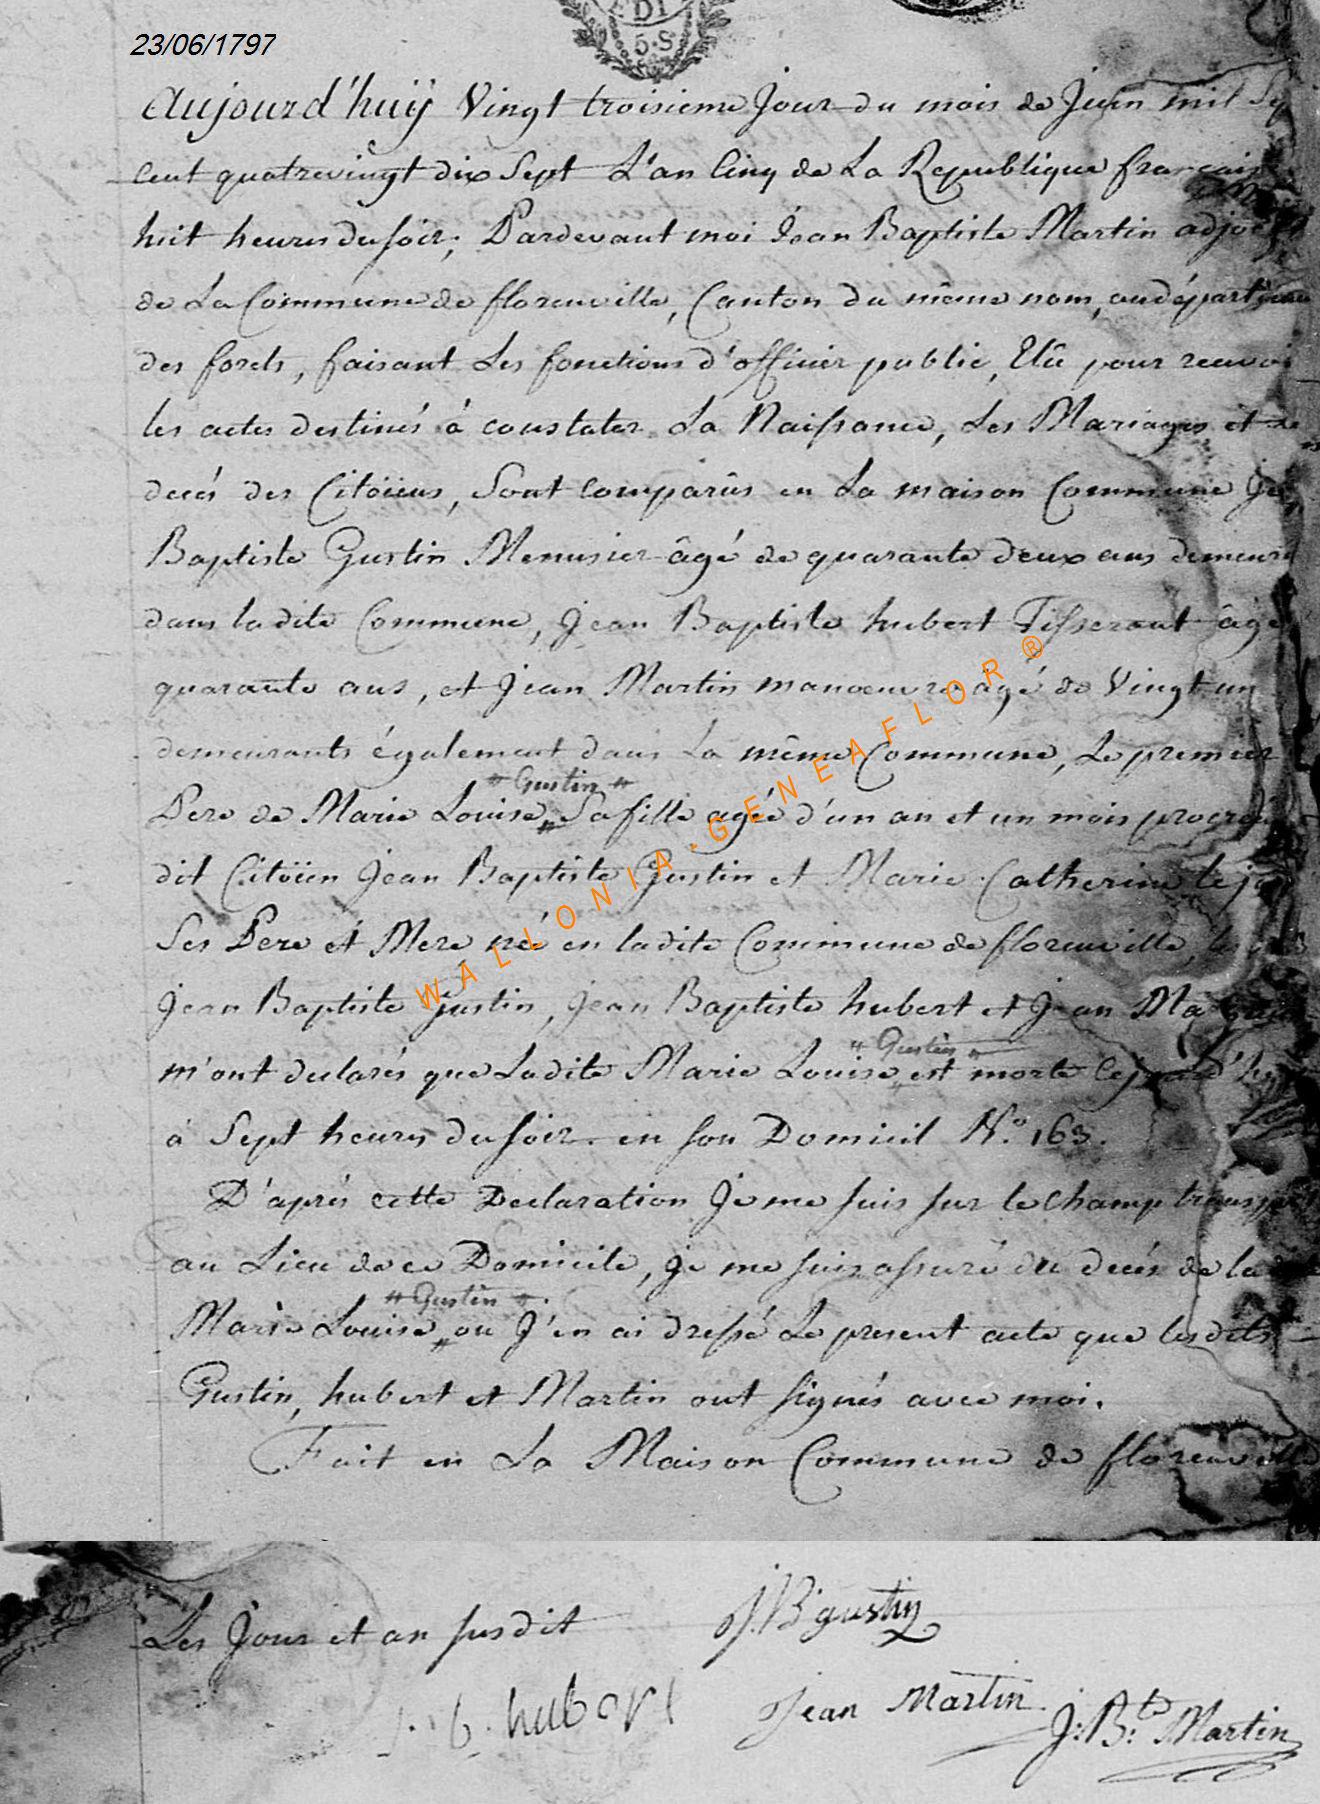 EDI
5.S
23/06/1797
Aujourd'huÿ Vingt troisieme Jour du mois de Juin mil Sep
cent quatrevingt dix Sept L'an Cinq de La Republique français
huit heures du soir; Pardevant moi Jean Baptiste Martin adjoint
de La Commune de florenville, Canton du même nom, au départeme
des forets, faisant Les fonctions d'officier public, Elû pour recevoi
les actes destinés à constater La Naissance, Les Mariages et le
decés des Citöiens, Sont comparûs en La maison Commune Je
Baptiste Gustin Menusier âgé de quarante deux ans demeura
dans ladite Commune, Jean Baptiste hubert Tisserant âgé
quarante ans, et Jean Martin manoeuvre agé de Vingt un
demeurants également dans La même Commune, Le premier
# Gustin #
Pere de Marie Louise # Sa fille agée d'un an et un mois procréé
dit Citöien Jean Baptiste Gustin et Marie Catherine leje
Ses Pere et Mere née en ladite Commune de florenville, les
Jean Baptiste Gustin, Jean Baptiste hubert et Jean Ma
# Gustin #
m'ont declarés que Ladite Marie Louise est morte cejourd'huy
à Sept heures du soir en son Domicil N.o 163.
D'aprés cette Declaration Je me suis sur le champ transpor
au Lieu de ce Domicile, Je me suis assuré du decés de ladite
# Gustin #.
Marie Louise # ou J'en ai dressé Le present acte que lesdits
Gustin, hubert et Martin ont signés avec moi.
Fait en La Maison Commune de florenville
Les Jour et an susdit
J.B gustin
J. b. hubert
Jean Martin
J: B:te Martin
WALLONIA.GENEAFLOR®